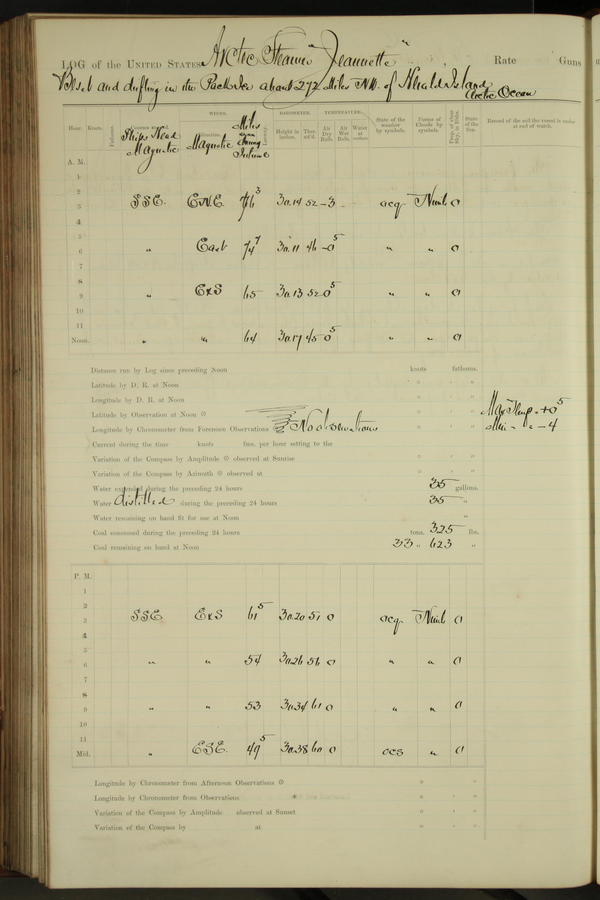 LOG of the UNITED STATES Arctic Steamer "Jeannette" Rate Guns
Beset and drifting in the Pack Ice about 272 Miles N.W. of Herald Island
Arctic Ocean
WINDS. BAROMETER. TEMPERATURE.
Hour. Knots. Fathoms. Ship's Head Magnetic Magnetic Miles Height in inches. Ther. att'd. Air Dry Bulb. Air Wet Bulb. Water at State of the weather by symbols. Forms of Clouds by symbols. Prop. of clear Sky, in 10ths. State of the Sea. Record of the sail the vessel is under at end of watch.
A. M.
1
2
3 SSE. ENE. 76³ 30.14 52 -3 ocq Nimb 0
4
5
6 " East 74⁷ 30.11 46 -0⁵ " " 0
7
8
9 " ExS 65 30.13 52 -0⁵ " " 0
10
11
Noon. " " 64 30.17 45 0⁵ " " 0
Distance run by Log since preceding Noon knots fathoms.
Latitude by D. R. at Noon ° ' "
Longitude by D. R. at Noon ° ' "
Latitude by Observation at Noon ° ' " Max Temp. +0⁵
Longitude by Chronometer from Forenoon Observations No observations ° ' " Min " " -4
Current during the time knots fms. per hour setting to the
Variation of the Compass by Amplitude observed at Sunrise ° ' "
Variation of the Compass by Azimuth observed at ° ' "
Water expended during the preceding 24 hours 35 gallons.
Water distilled during the preceding 24 hours 35 "
Water remaining on hand fit for use at Noon "
Coal consumed during the preceding 24 hours tons. 325 lbs.
Coal remaining on hand at Noon 33 " 623 "
P. M.
1
2
3 SSE ExS 61⁵ 30.20 51 0 ocq Nimb 0
4
5
6 " " 54 30.26 56 0 " " 0
7
8
9 " " 53 30.34 61 0 " " 0
10
11
Mid. " ESE. 49⁵ 30.38 60 0 ocs " 0
Longitude by Chronometer from Afternoon Observations ° ' "
Longitude by Chronometer from Observations ° ' "
Variation of the Compass by Amplitude observed at Sunset ° ' "
Variation of the Compass by at ° ' "